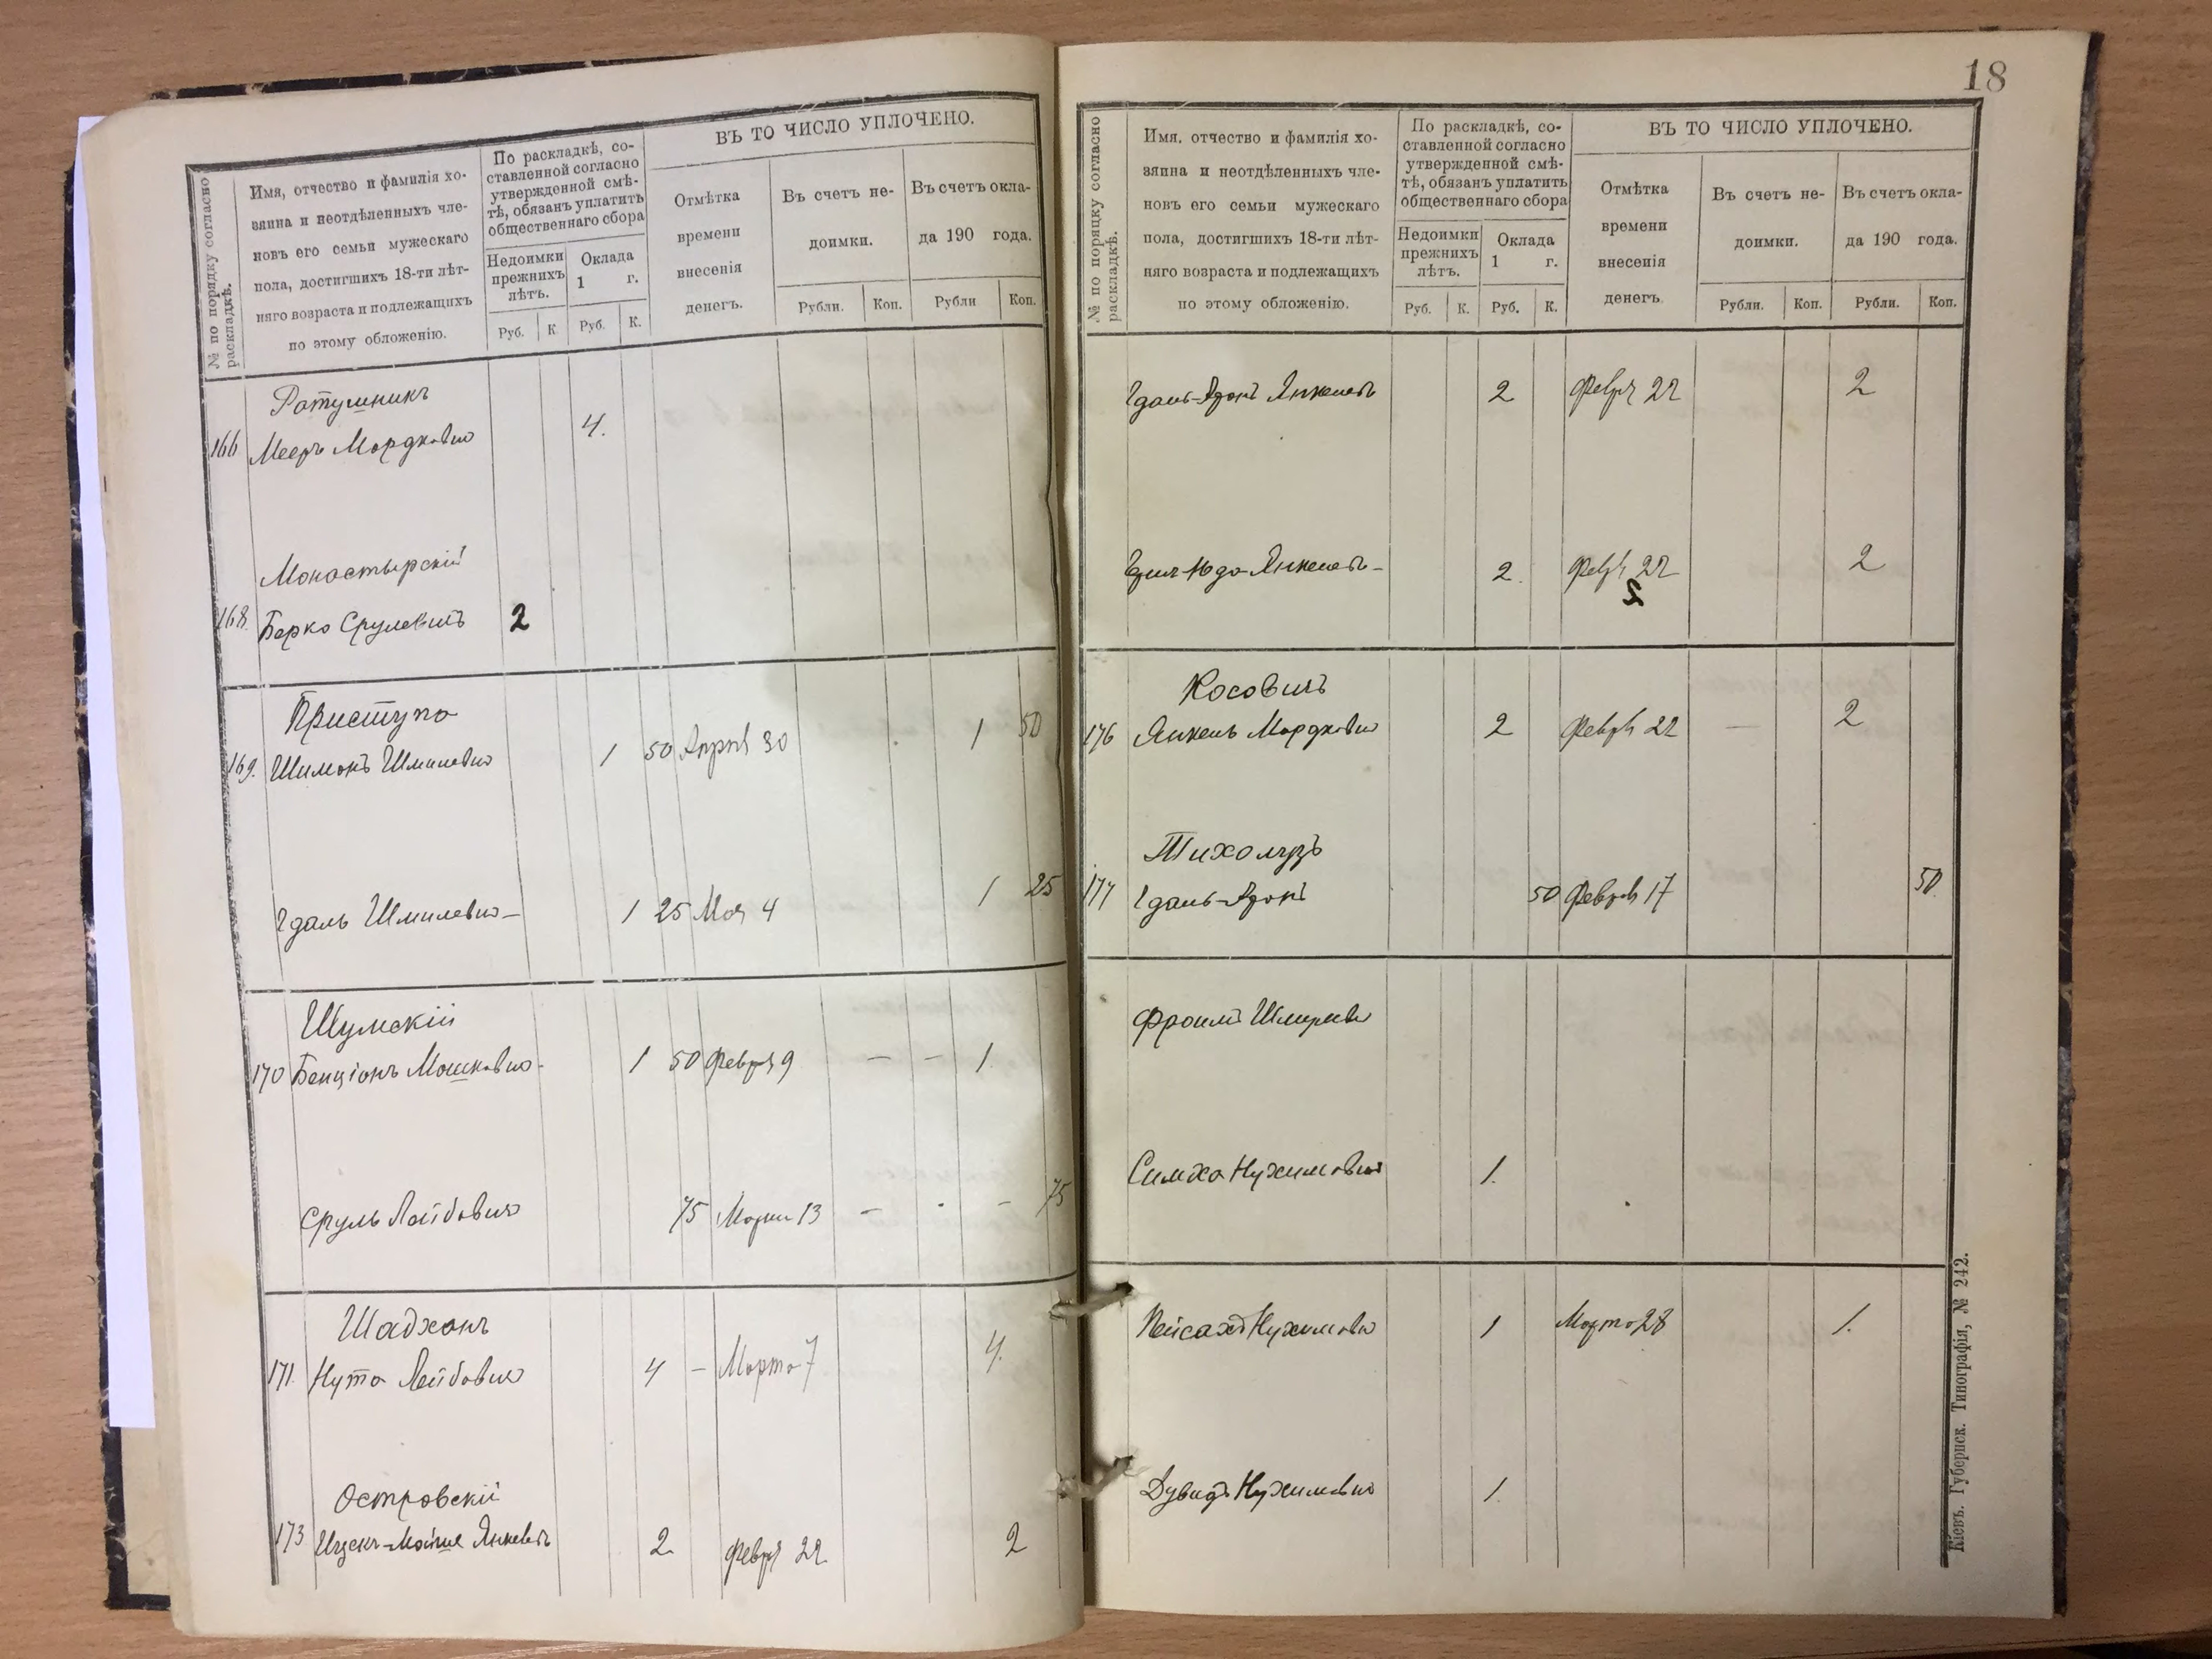 № по порядку согласно раскладкѣ.
Имя, отчество и фамилія хо-
зяина и неотдѣленныхъ чле-
новъ его семьи мужескаго
пола, достигшихъ 18-ти лѣт-
няго возраста и подлежащихъ
по этому обложенію.
По раскладкѣ, со-
ставленной согласно
утвержденной смѣ-
тѣ, обязанъ уплатить
общественнаго сбора
Недоимки
прежнихъ
лѣтъ.
Оклада
1 г.
Руб. К. Руб. К.
ВЪ ТО ЧИСЛО УПЛОЧЕНО.
Отмѣтка
времени
внесенія
денегъ.
Въ счетъ не-
доимки.
Въ счетъ окла-
да 190 года.
Рубли. Коп. Рубли Коп.
Ратушникъ
166 Мееръ Мордковичъ 4.
Монастырскій
168. Берко Срулевичъ 2
Приступа
169. Шимонъ Шмилевич 1 50 Апрѣл 30 1 50
Гдаль Шмилевич- 1 25 Мая 4 1 25
Шумскій
170 Бенціонъ Мошкович- 1 50 Февр 9 — — 1
Сруль Лейбович 75 Марта 13 — - — 75
Шадханъ
171. Нута Лейбович 4 — Марта 7 4.
Островскій
173 Ицек-Мойше Янкелев 2 Февр 22 2
18
№ по порядку согласно раскладкѣ.
Имя, отчество и фамилія хо-
зяина и неотдѣленныхъ чле-
новъ его семьи мужескаго
пола, достигшихъ 18-ти лѣт-
няго возраста и подлежащихъ
по этому обложенію.
По раскладкѣ, со-
ставленной согласно
утвержденной смѣ-
тѣ, обязанъ уплатить
общественнаго сбора
Недоимки
прежнихъ
лѣтъ.
Оклада
1 г.
Руб. К. Руб. К.
ВЪ ТО ЧИСЛО УПЛОЧЕНО.
Отмѣтка
времени
внесенія
денегъ.
Въ счетъ не-
доимки.
Въ счетъ окла-
да 190 года.
Рубли. Коп. Рубли. Коп.
Гдаль-Аронъ Янкелев 2 Февр 22 2
Юда-Янкелев- 2 Февр 22 2
Косовичъ
176 Янкель Мордкович 2 Февр 22 — 2
177 Гдаль-Аронъ 50 Февр 17 50
Фроимъ Шмерев
Симха Нухимович 1.
Пейсахъ Нухимович 1 Марта 28 1.
Дувидъ Нухимович 1.
Кіевъ. Губернск. Типографія, № 242.